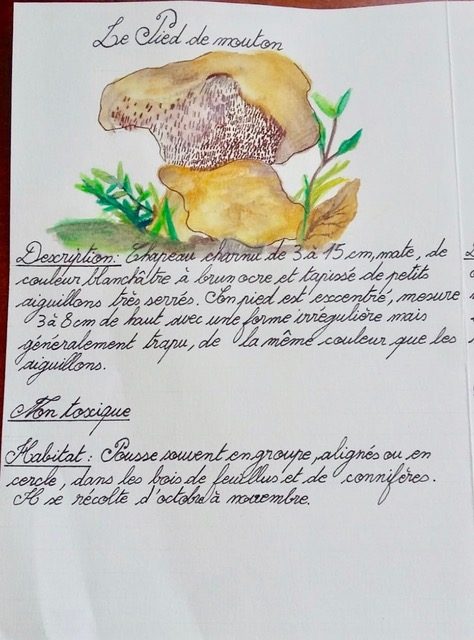 Le Pied de mouton
Description: Chapeau charnu de 3 à 15 cm, mate, de
couleur blanchâtre à brun ocre et tapissé de petits
aiguillons très serrés. Son pied est excentré, mesure
3 à 8 cm de haut avec une forme irregulière mais
géneralement trapu, de la même couleur que les
aiguillons.
Non toxique
Habitat: Pousse souvent en groupe, alignés ou en
cercle, dans les bois de feuillus et de connifères.
Il se récolte d'octobre à novembre.